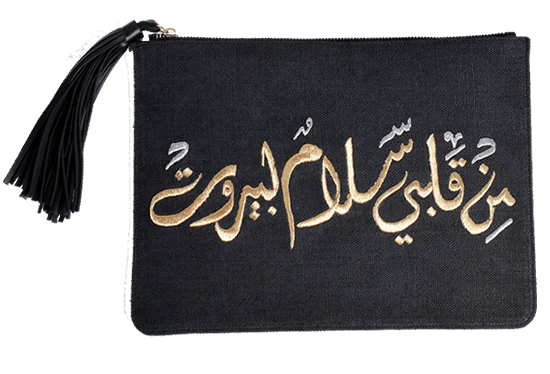 مِنْ قَلبي سَّلامٌ لبيروتْ